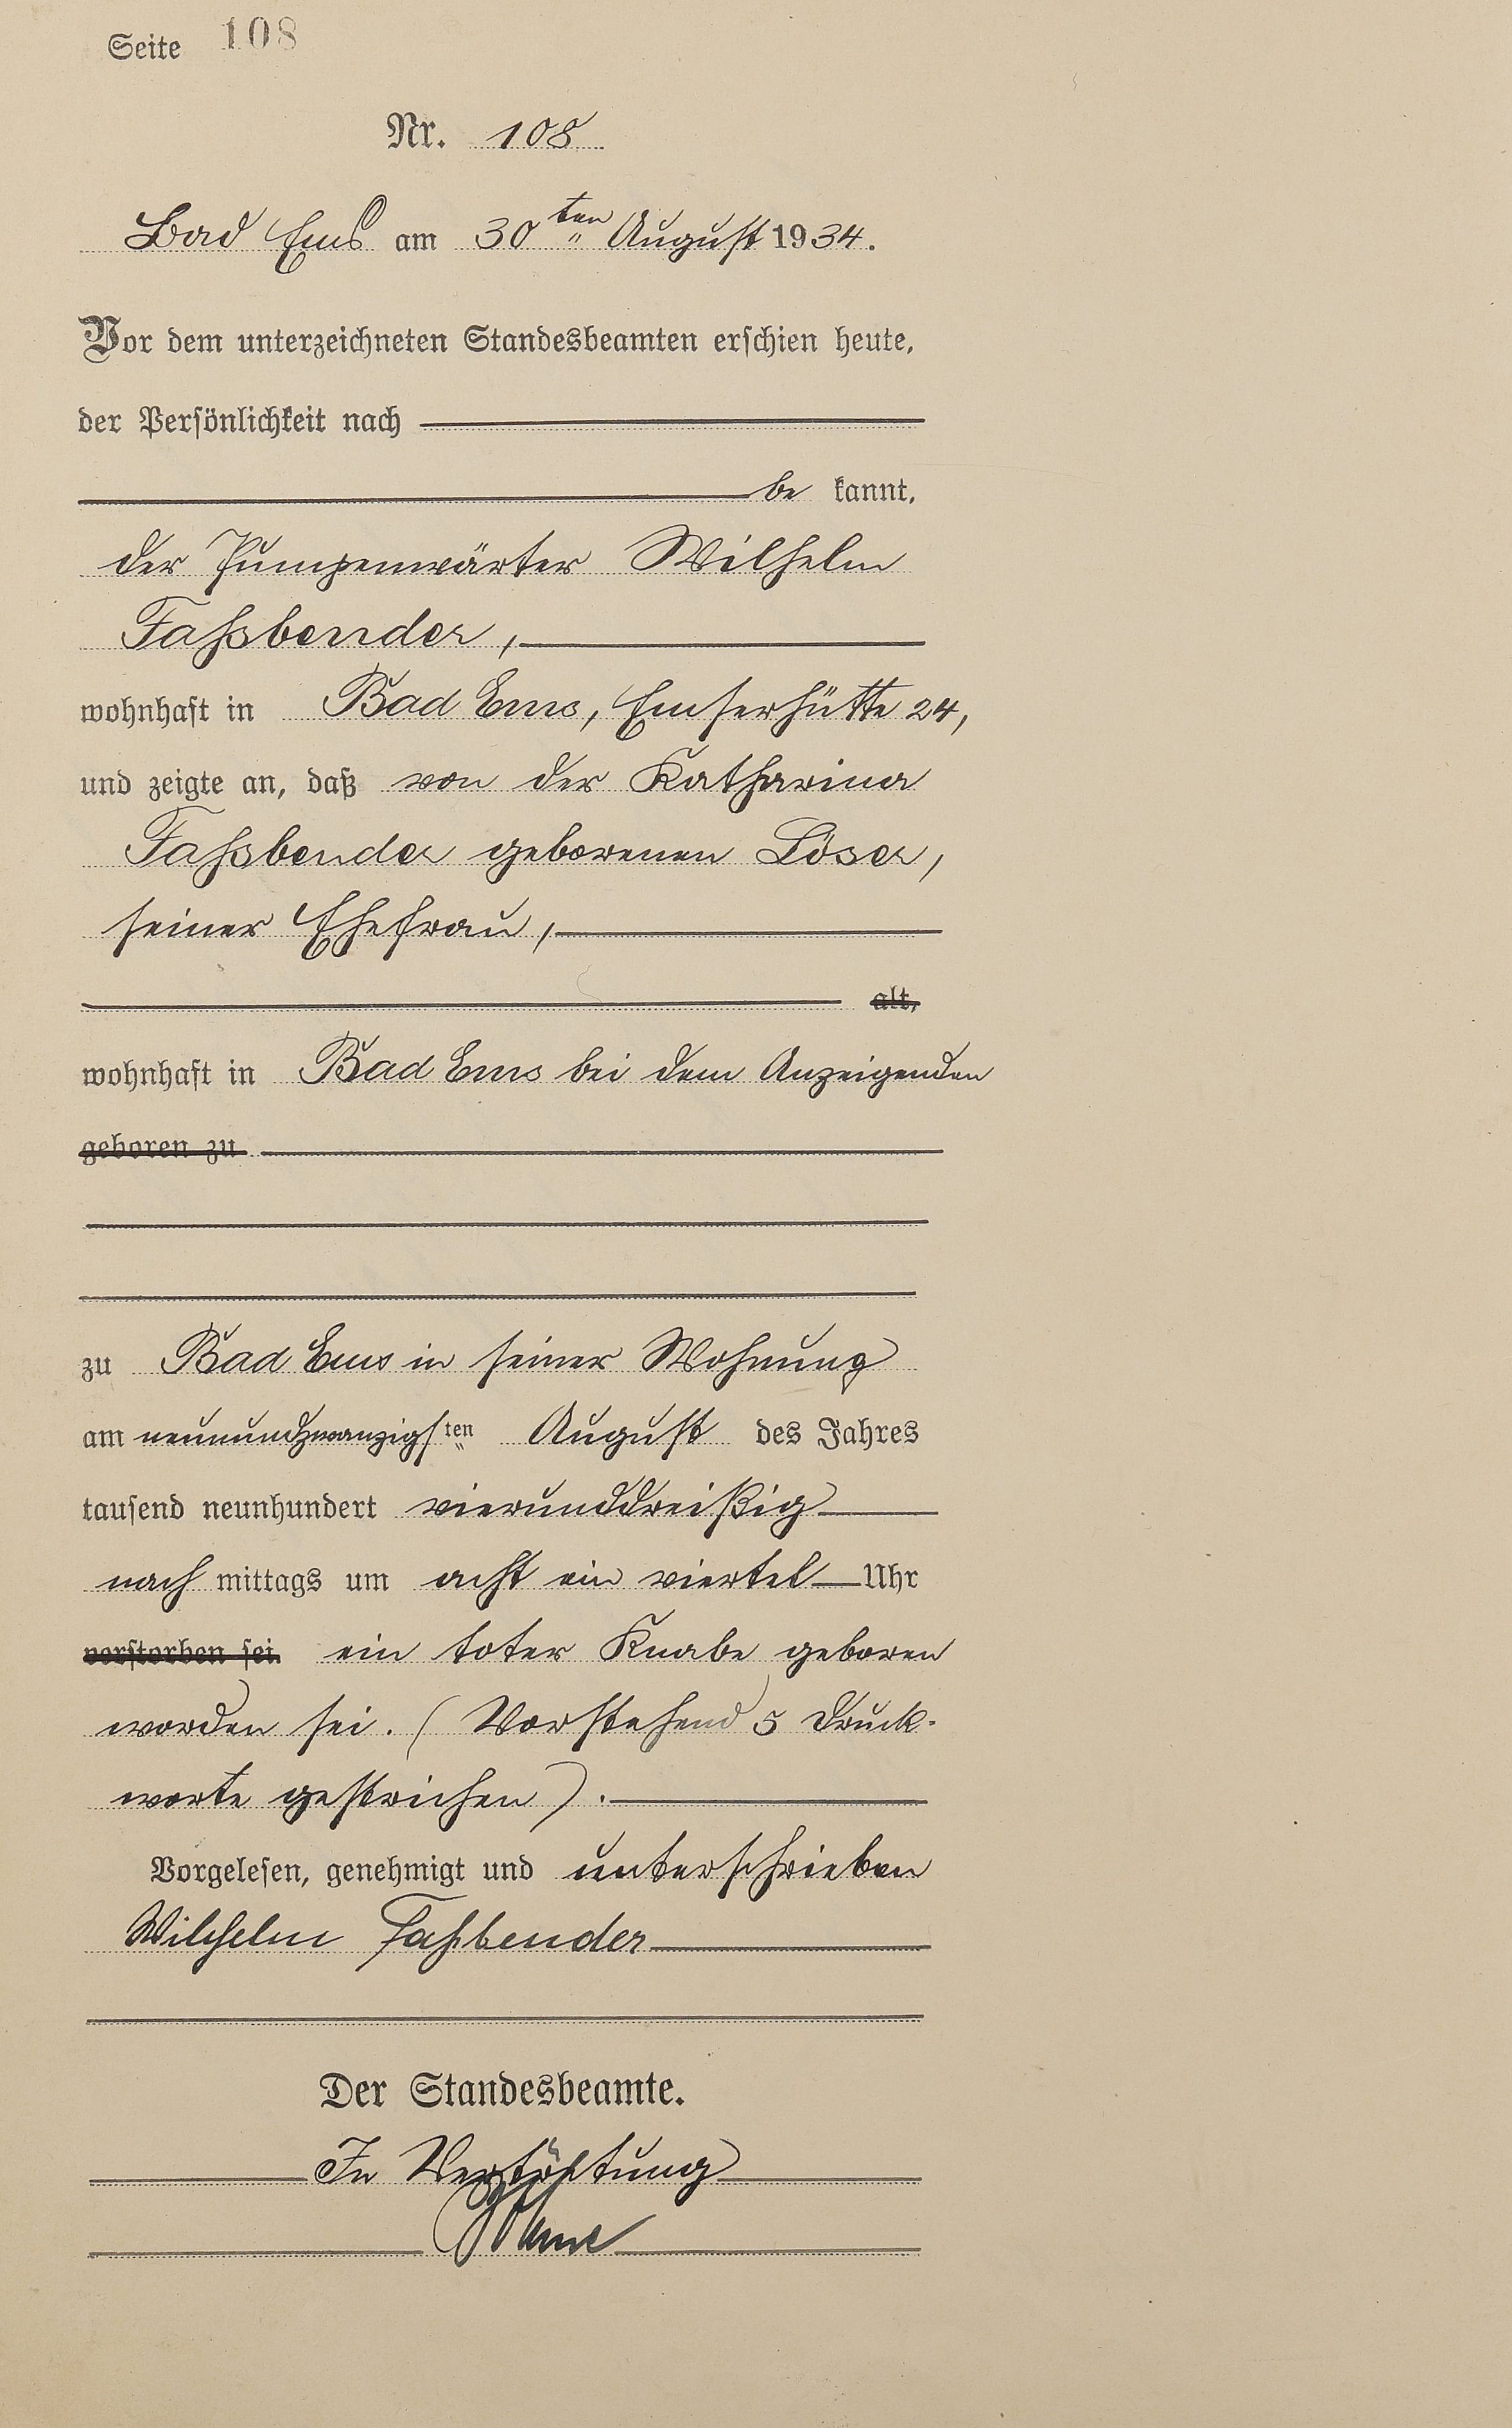 Seite 108
Nr. 108
Bad Ems am 30ten August 1934.
Vor dem unterzeichneten Standesbeamten erschien heute,
der Persönlichkeit nach
be kannt,
der Pumpenwärter Wilhelm
Faßbender,
wohnhaft in Bad Ems, Emserhütte 24,
und zeigte an, daß von der Katharina
Faßbender geborenen Löser,
seiner Ehefrau,
alt,
wohnhaft in Bad Ems bei dem Anzeigenden
geboren zu
zu Bad Ems in seiner Wohnung
am neunundzwanzigsten August des Jahres
tausend neunhundert vierunddreißig
nach mittags um acht ein viertel Uhr
verstorben sei. ein toter Knabe geboren
worden sei. (Vorstehend 5 Druck-
worte gestrichen).
Vorgelesen, genehmigt und unterschrieben
Wilhelm Faßbender
Der Standesbeamte.
In Vertretung